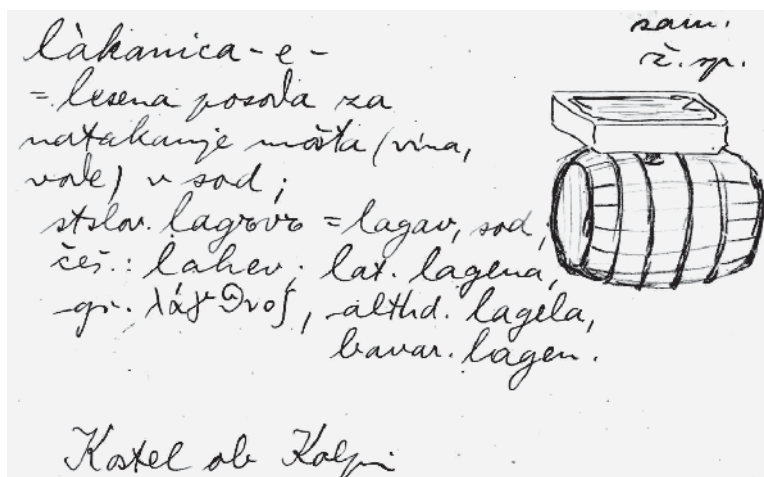 làkanica -e -
sam.
ž. sp.
= lesena posoda za
natakanje mošta (vina,
vode) v sod;
stslov. lagovo = lagav, sod,
češ.: lahev; lat. lagena,
gr. λάγυνος, althd. lagela,
bavar. lagen.
Kostel ob Kolpi